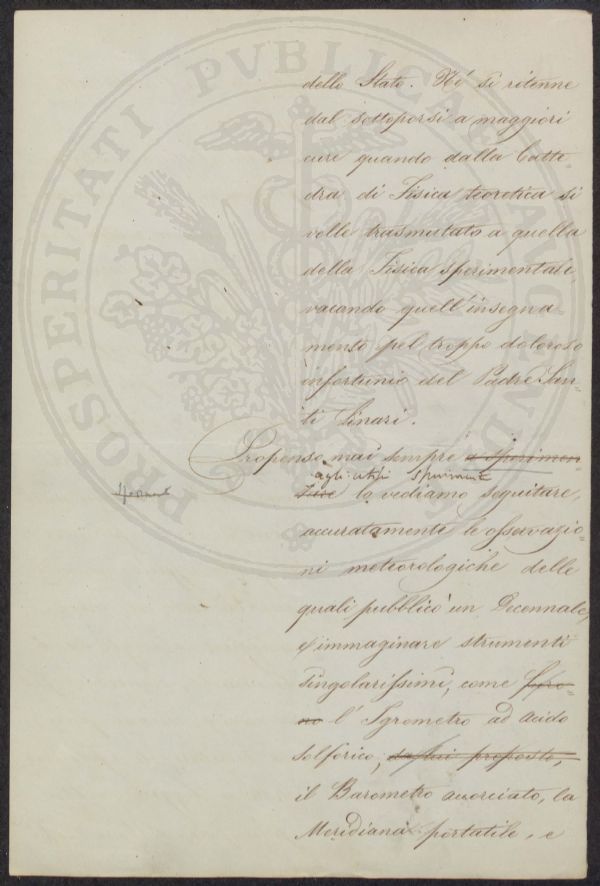 PROSPERITATI PVBLICAE AVGENDAE
dello Stato. Nè si ritenne
dal sottoporsi a maggiori
cure quando dalla Catte=
dra di Fisica teoretica si
volle trasmutato a quella
della Fisica sperimentale,
vacando quell'insegna=
mento pel troppo doloroso
infortunio del Padre San=
ti Linari.
Propenso mai sempre a sperimen=
agli utili
tare lo vediamo seguitare,
accuratamente le osservazio=
ni meteorologiche delle
quali pubblicò un Decennale,
e immaginare strumenti
singolarissimi, come
l'Igrometro ad acido
solforico, da lui proposto,
il Barometro accorciato, la
Meridiana portatile, e